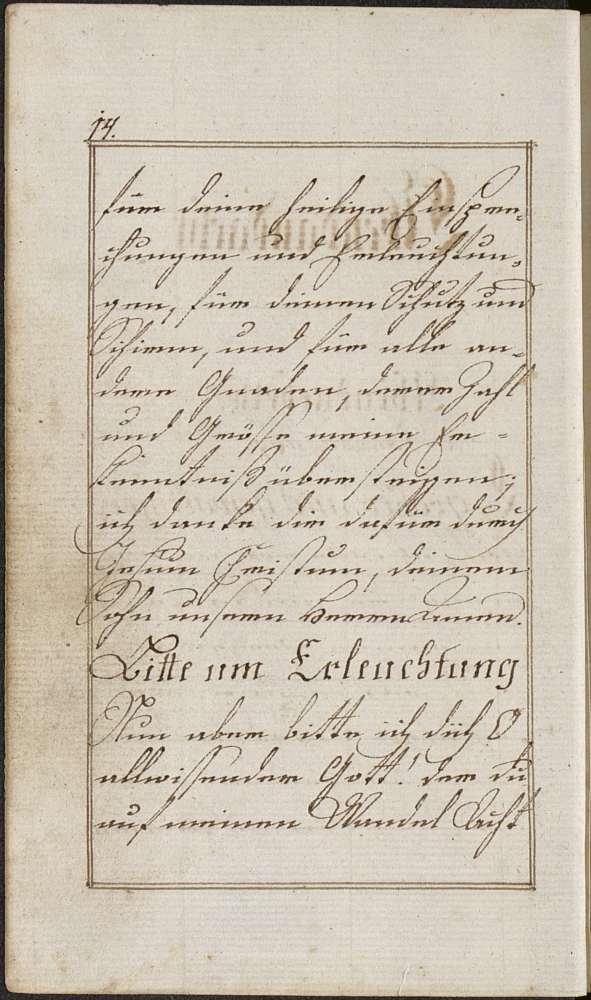 14.
für deine heilige Einspre-
chungen und Erleuchtun-
gen, für deinen Schutz und
Schirm, und für alle an-
dere Gnaden, deren Zahl
und Grösse meine Er-
kenntniß übersteigen;
ich danke dir dafür durch
Jesum Cristum, deinem
Sohn unsern Herren Amen.
Bitte um Erleuchtung
Nun aber bitte ich dich O
allwissender Gott! der du
auf meinen Wandel Acht